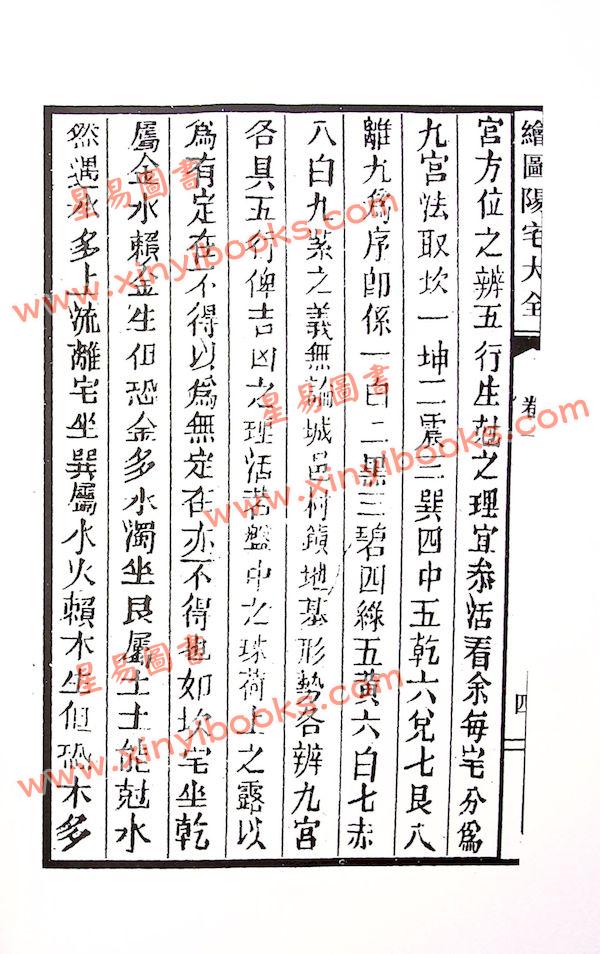 繪圖陽宅大全
卷一
四
宮方位之辨五行生尅之理宜叅活看余每宅分為
九宮法取坎一坤二震三巽四中五乾六兌七艮八
離九為序卽係一白二黑三碧四綠五黃六白七赤
八白九紫之義無論城邑村鎮地基形勢各辨九宮
各具五行俾吉凶之理活若盤中之珠荷上之露以
為有定在不得以為無定在亦不得也如坎宅坐乾
屬金水賴金生但恐金多水濁坐艮屬土土能尅水
然遇水多土流離宅坐巽屬水火賴木生但恐木多
星易圖書
www.xinyibooks.com
星易圖書
www.xinyibooks.com
星易圖書
www.xinyibooks.com